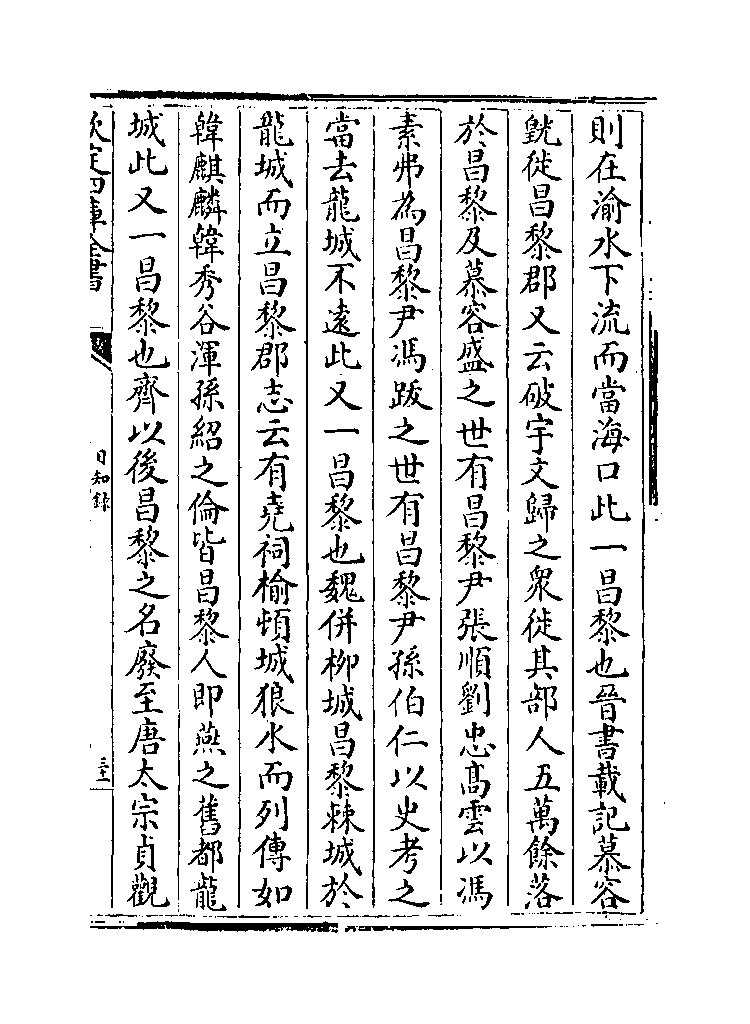 則在渝水下流而當海口此一昌黎也晉書載記慕容
皝徙昌黎郡又云破宇文歸之衆徙其部人五萬餘落
於昌黎及慕容盛之世有昌黎尹張順劉忠髙雲以馮
素弗為昌黎尹馮跋之世有昌黎尹孫伯仁以史考之
當去龍城不遠此又一昌黎也魏併柳城昌黎棘城於
龍城而立昌黎郡志云有堯祠榆頓城狼水而列傳如
韓麒麟韓秀谷渾孫紹之倫皆昌黎人即燕之舊都龍
城此又一昌黎也齊以後昌黎之名廢至唐太宗貞觀
欽定四庫全書
日知錄